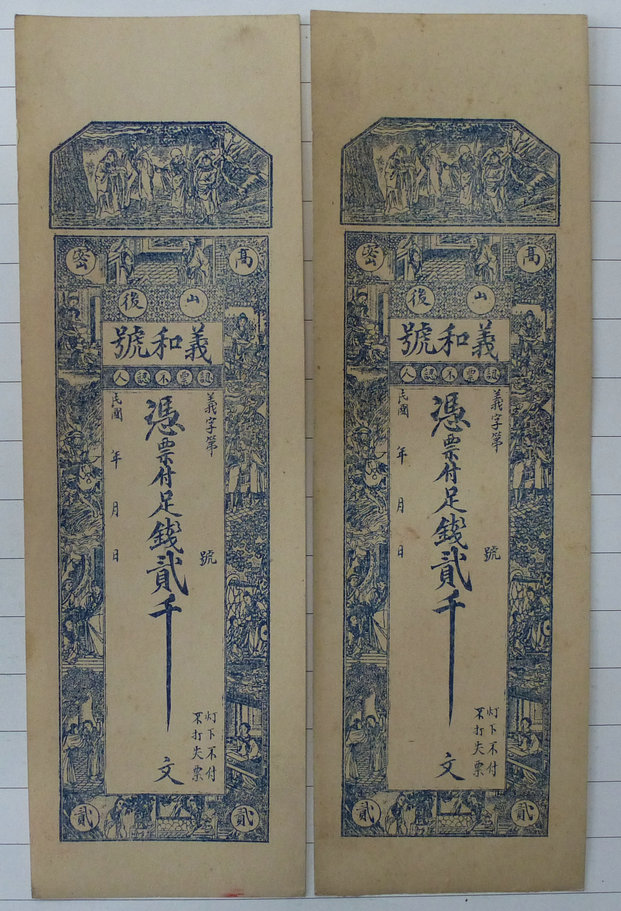 高密
山後
義和號
認票不認人
義字第 號
憑票付足錢貳千文
民國 年 月 日
灯下不付
不打失票
貳 貳
高密
山後
義和號
認票不認人
義字第 號
憑票付足錢貳千文
民國 年 月 日
灯下不付
不打失票
貳 貳